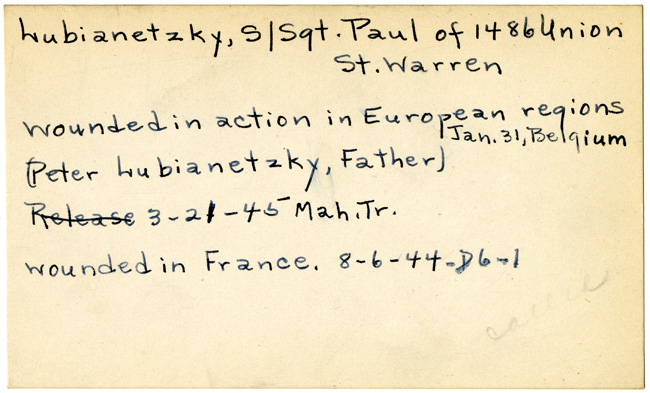 Lubianetzky, S/Sgt. Paul of 1486 Union
St. Warren
wounded in action in European regions
Jan. 31, Belgium
(Peter Lubianetzky, Father)
Release 3-21-45 Mah. Tr.
wounded in France. 8-6-44-D6-1